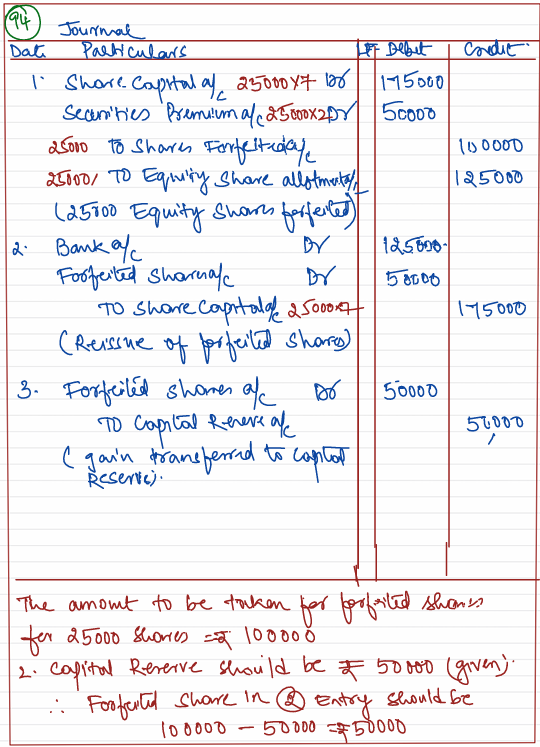 94 Journal
Date Particulars LF Debit Credit
1. Share Capital a/c 25000×7 Dr 175000
Securities Premium a/c 25000×2 Dr 50000
25000 To Shares Forfeited a/c 100000
25000/ To Equity Share allotment a/c 125000
(25000 Equity Shares forfeited)
2. Bank a/c Dr 125000
Forfeited Share a/c Dr 50000
To Share Capital a/c 25000×7 175000
(Reissue of forfeited shares)
3. Forfeited shares a/c Dr 50000
To Capital Reserve a/c 50000
(gain transferred to capital
Reserve).
The amount to be taken for forfeited shares
for 25000 shares = ₹ 100000
2. Capital Reserve should be ₹ 50000 (given).
∴ Forfeited Share in ② Entry should be
100000 - 50000 = ₹50000